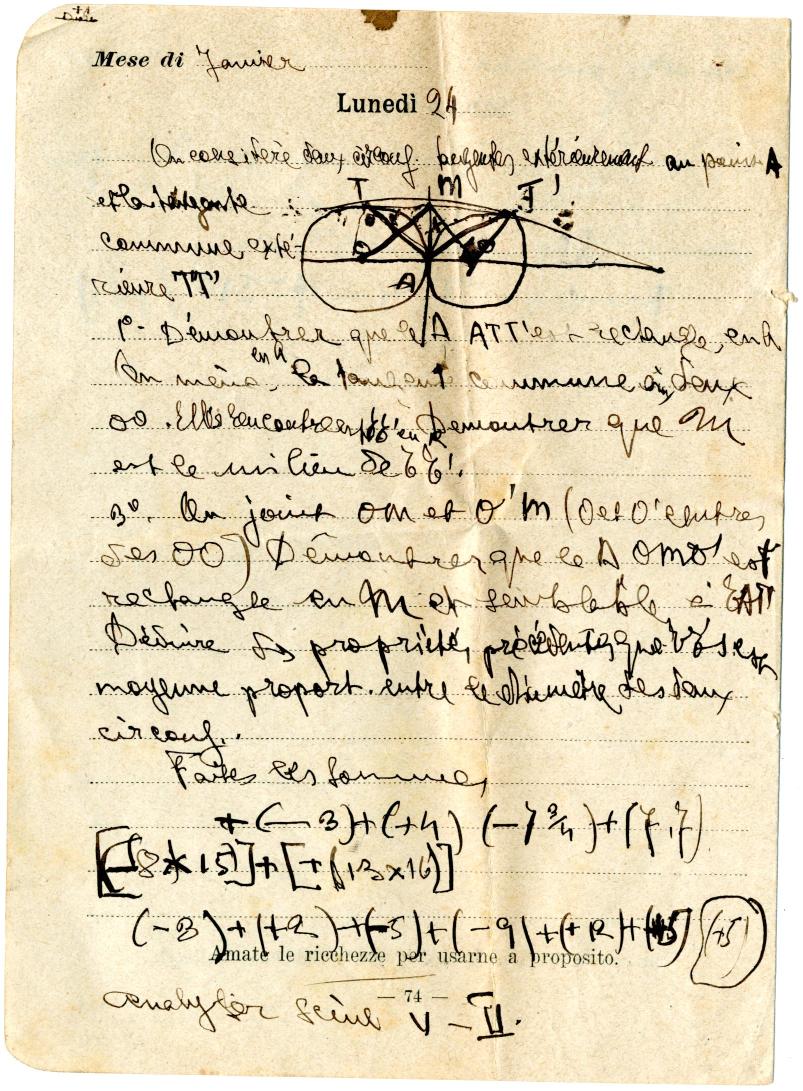 Mese di Janvier
Lunedì 24
On considère deux circonf. tangentes extérieurement au point A
T M T'
et la tangente
commune exté-
rieure TT'
O A
1°- Démontrer que le Δ ATT' est rectangle en A
On mène en A la tangente commune aux deux
OO. Elle rencontre TT' en M Démontrer que M
est le milieu de TT'.
3°. On joint OM et O'M (O et O' centres
des OO) Démontrer que le Δ OMO' est
rectangle en M et semblable à TAT'
Déduire des propriétés précédentes que TT' est
moyenne proport. entre le diamètre des deux
circonf..
Faites les sommes
+(-3)+(+4) (-7 3/4)+(7,7)
[(-8)×15]+[+(13×16)]
(-3)+(+2)+(-5)+(-9)+(+12)+ (+5)
Amate le ricchezze per usarne a proposito.
— 74 —
Analyser scène V-II.